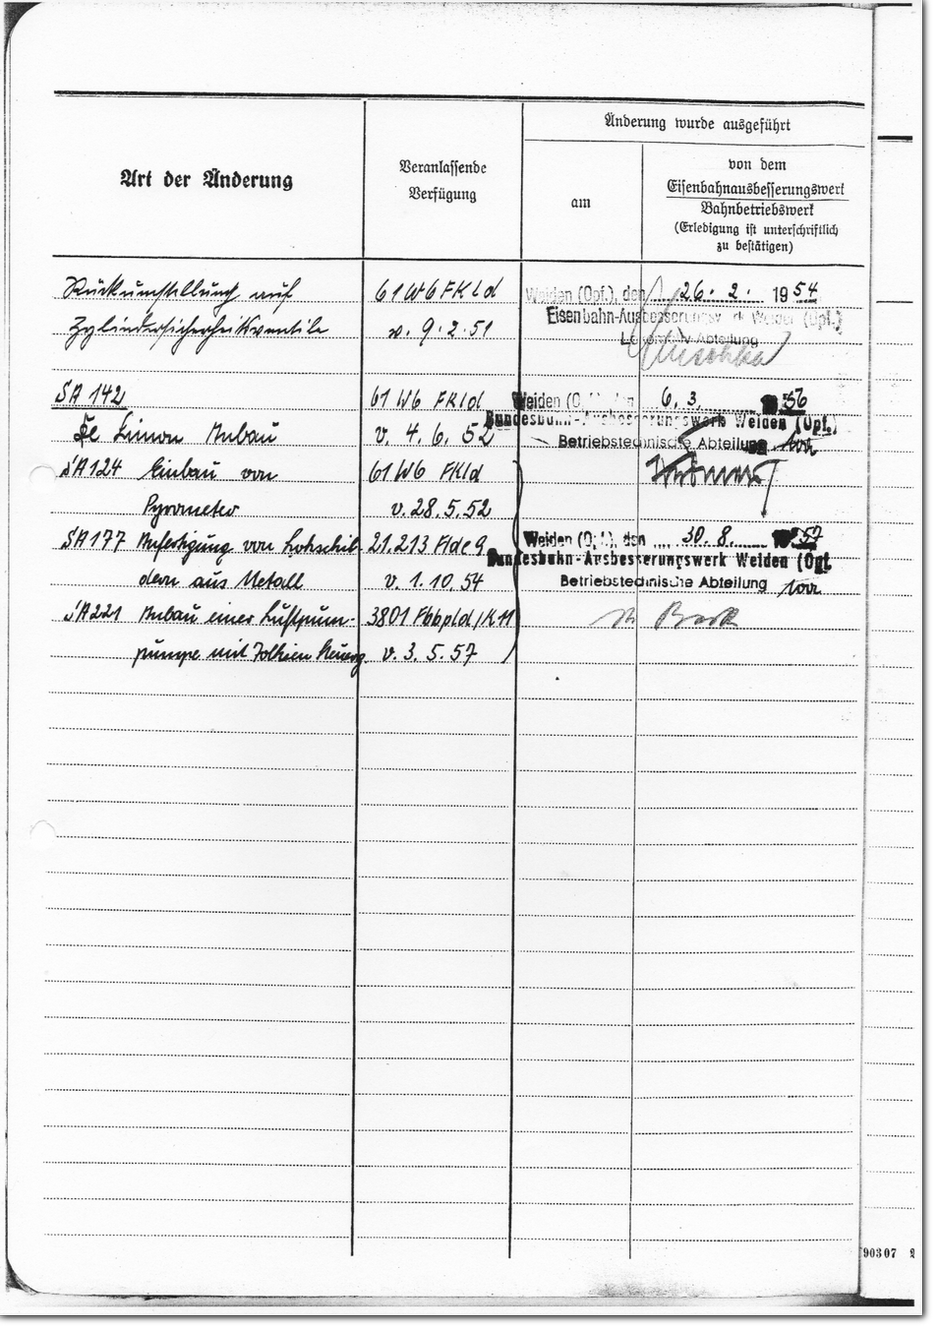 Art der Änderung
Veranlassende
Verfügung
Änderung wurde ausgeführt
am
von dem
Eisenbahnausbesserungswerk
Bahnbetriebswerk
(Erledigung ist unterschriftlich
zu bestätigen)
Rückumstellung auf 61 W6 FKld Weiden (Opf.), den 26. 2. 1954
Zylindersicherheitsventile v. 9.2.51 Eisenbahn-Ausbesserungswerk Weiden (Opf.)
Lokomotiv-Abteilung
SA 142 61 W6 FKld Weiden (O den 6. 3. 56
Anbau v. 4. 6. 52 Bundesbahn-Ausbesserungswerk Weiden (Opf.)
Betriebstechnische Abteilung
SA 124 Einbau von 61 W6 FKld
Pyrometer v. 28.5.52
SA 177 Befestigung von Lokschil- 21.213 Flde 9 Weiden (Opf.), den 30. 8. 1957
dern aus Metall v. 1.10.54 Bundesbahn-Ausbesserungswerk Weiden (Opf.
Betriebstechnische Abteilung
SA 221 Anbau einer Luftpum-
pumpe mit v. 3. 5. 57
90307 2